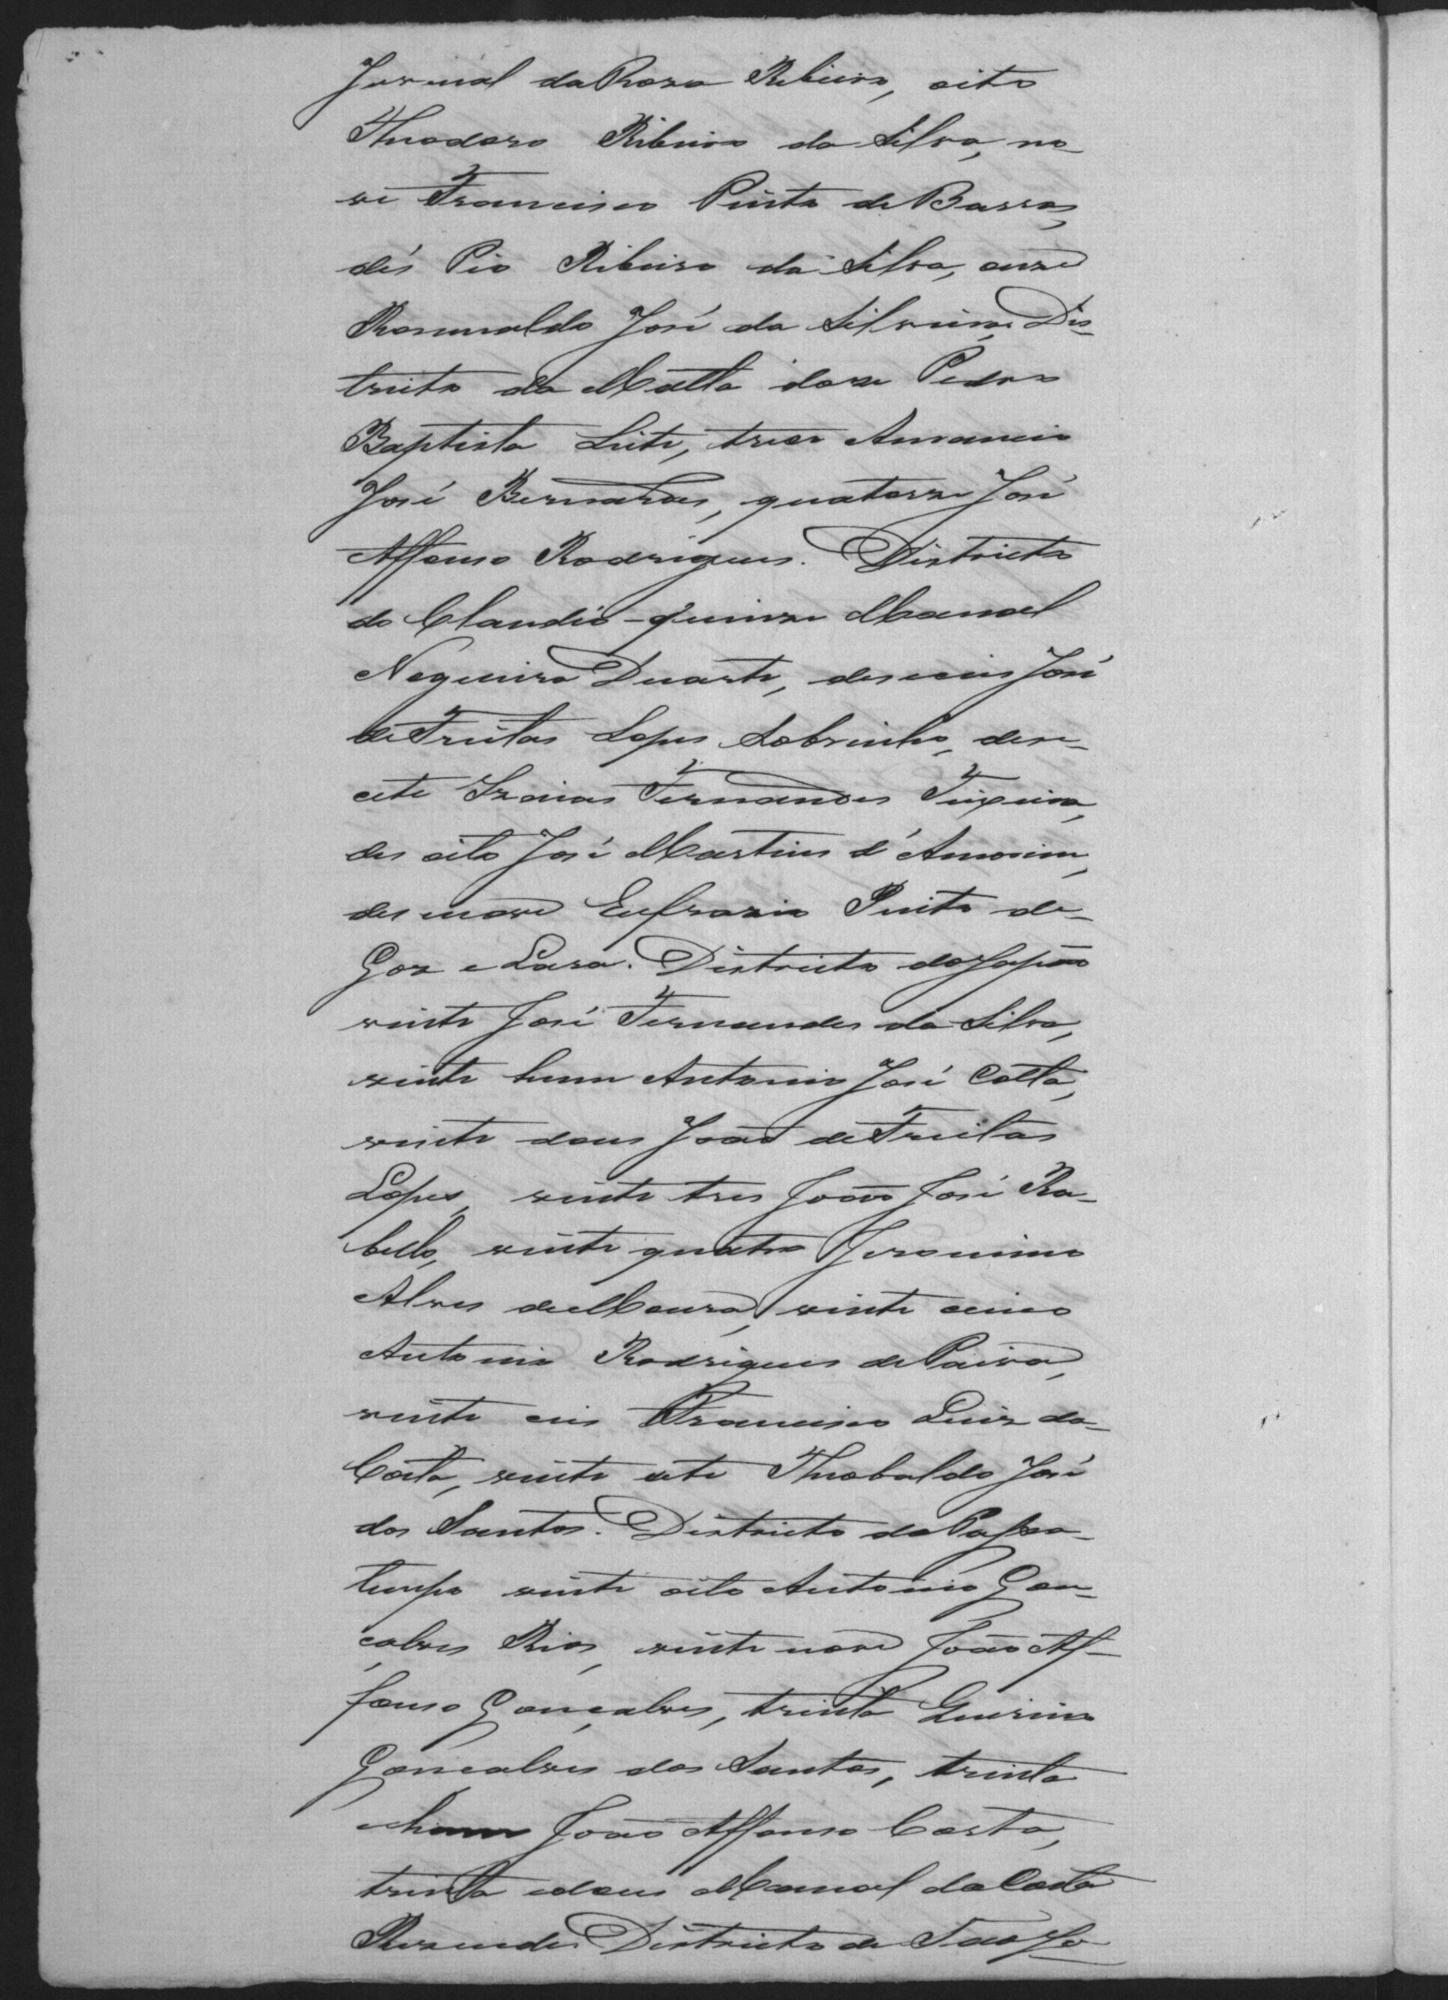 Juvenal da Rosa Ribeiro, oito
Theodoro Ribeiro da Silva, no-
ve Francisco Pinto de Barros,
dés Pio Ribeiro da Silva, onze
Romualdo José da Silveira, Dis-
tricto da Matta doze Pedro
Baptista Leite, trese Amancio
José Bernardes, quatorze José
Affonso Rodrigues. Districto
do Claudio - quinze Manoel
Nogueira Duarte, deseceis José
de Freitas Lopes Sobrinho, dese-
cete Izaias Fernandes Teixeira,
des oito José Martins d'Amorim,
des nove Eufrazio Pinto de
Goz e Lara. Districto do Japão
vinte José Fernandes da Silva,
vinte hum Antonio José Cotta,
vinte dous João de Freitas
Lopes, vinte tres João José Ra-
bello, vinte quatro Jeronimo
Alves de Moura, vinte cinco
Antonio Rodrigues de Paiva,
vinte ceis Francisco Luiz da
Costa, vinte cete Theobaldo José
dos Santos. Districto do Passa-
tempo vinte oito Antonio Gon-
çalves Rios, vinte nove João Af-
fonso Gonçalves, trinta Quirino
Gonçalves dos Santos, trinta
e hum João Affonso Costa,
trinta e dous Manoel da Costa
Rezende. Districto de